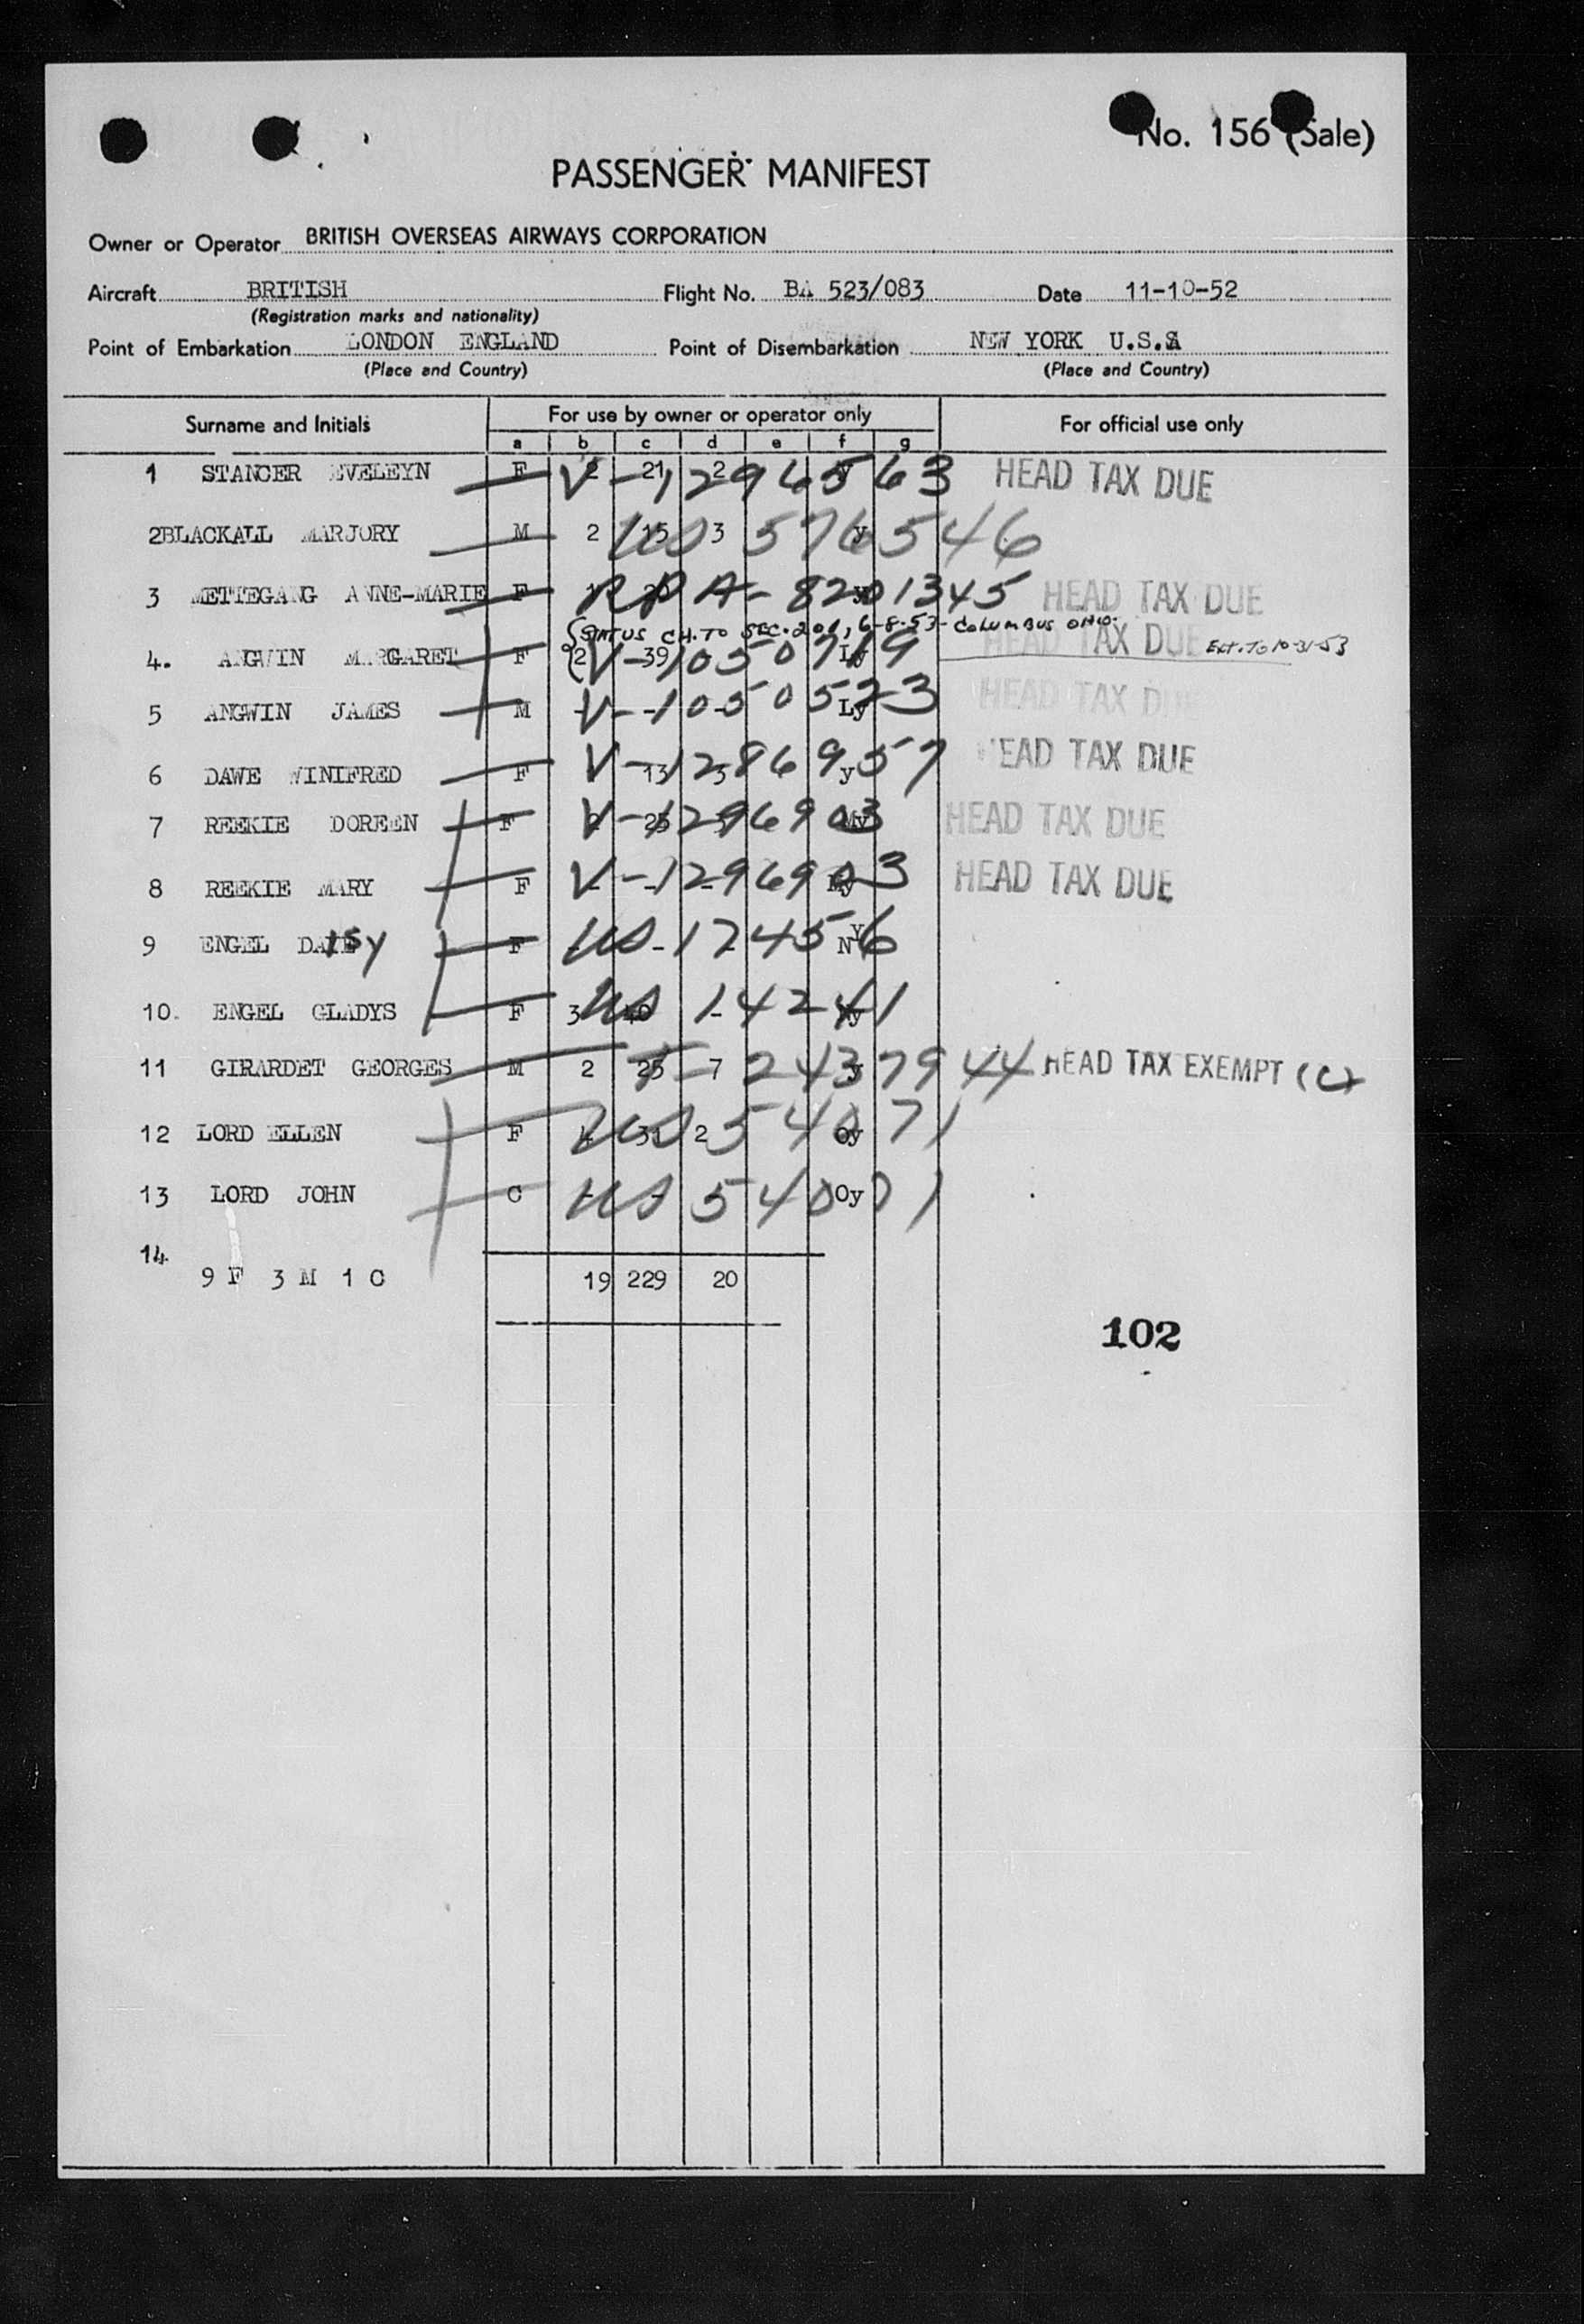 No. 156 (Sale)
PASSENGER MANIFEST
Owner or Operator BRITISH OVERSEAS AIRWAYS CORPORATION
Aircraft BRITISH Flight No. BA 523/083 Date 11-10-52
(Registration marks and nationality)
Point of Embarkation LONDON ENGLAND Point of Disembarkation NEW YORK U.S.A
(Place and Country) (Place and Country)
Surname and Initials For use by owner or operator only For official use only
a b c d e f g
1 STANCER EVELEYN F 2 21 2 V-1296563 HEAD TAX DUE
2 BLACKALL MARJORY M 2 15 3 y US 576546
3 METTEGANG ANNE-MARIE F RP A-8201345 HEAD TAX DUE
STATUS CH. TO SEC. 201, 6-8-53- COLUMBUS OHIO.
4. ANGWIN MARGARET F 2 39 Ly V-1050719 HEAD TAX DUE Ext. To 10-31-53
5 ANGWIN JAMES M - - - Ly V-1050523 HEAD TAX DUE
6 DAWE WINIFRED F 13 3 y V-1286957 HEAD TAX DUE
7 REEKIE DOREEN F 2 25 My V-1296903 HEAD TAX DUE
8 REEKIE MARY F - - - My V-1296903 HEAD TAX DUE
9 ENGEL DAISY F - - - NY US 172456
10. ENGEL GLADYS F 3 40 - Ny US 14241
11 GIRARDET GEORGES M 2 25 7 y T-2437944 HEAD TAX EXEMPT (C)
12 LORD ELLEN F 4 31 2 Oy US 54071
13 LORD JOHN C - - Oy US 54071
14.
9 F 3 M 1 C 19 229 20
102